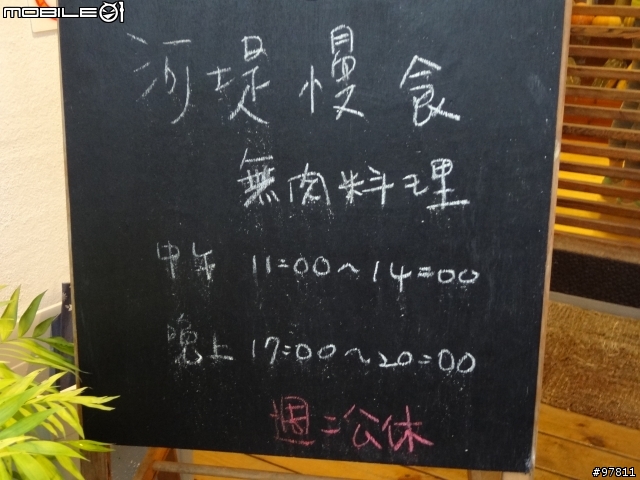 MOBILE01
河堤慢食
無肉料理
中午 11:00~14:00
晚上 17:00~20:00
週二公休
#97811